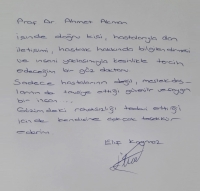 Prof Dr Ahmet Akman
işinde doğru kişi, hastalarıyla olan
iletişimi, hastalık hakkında bilgilendirmesi
ve insani yaklaşımıyla kesinlikle tercih
edeceğim bir göz doktoru.
Sadece hastalarının değil, meslektaş-
larının da tavsiye ettiği güvenilir ve saygın
bir insan...
Gözümdeki rahatsızlığı tedavi ettiği
için de kendisine çok teşekkür
ederim.
Elif